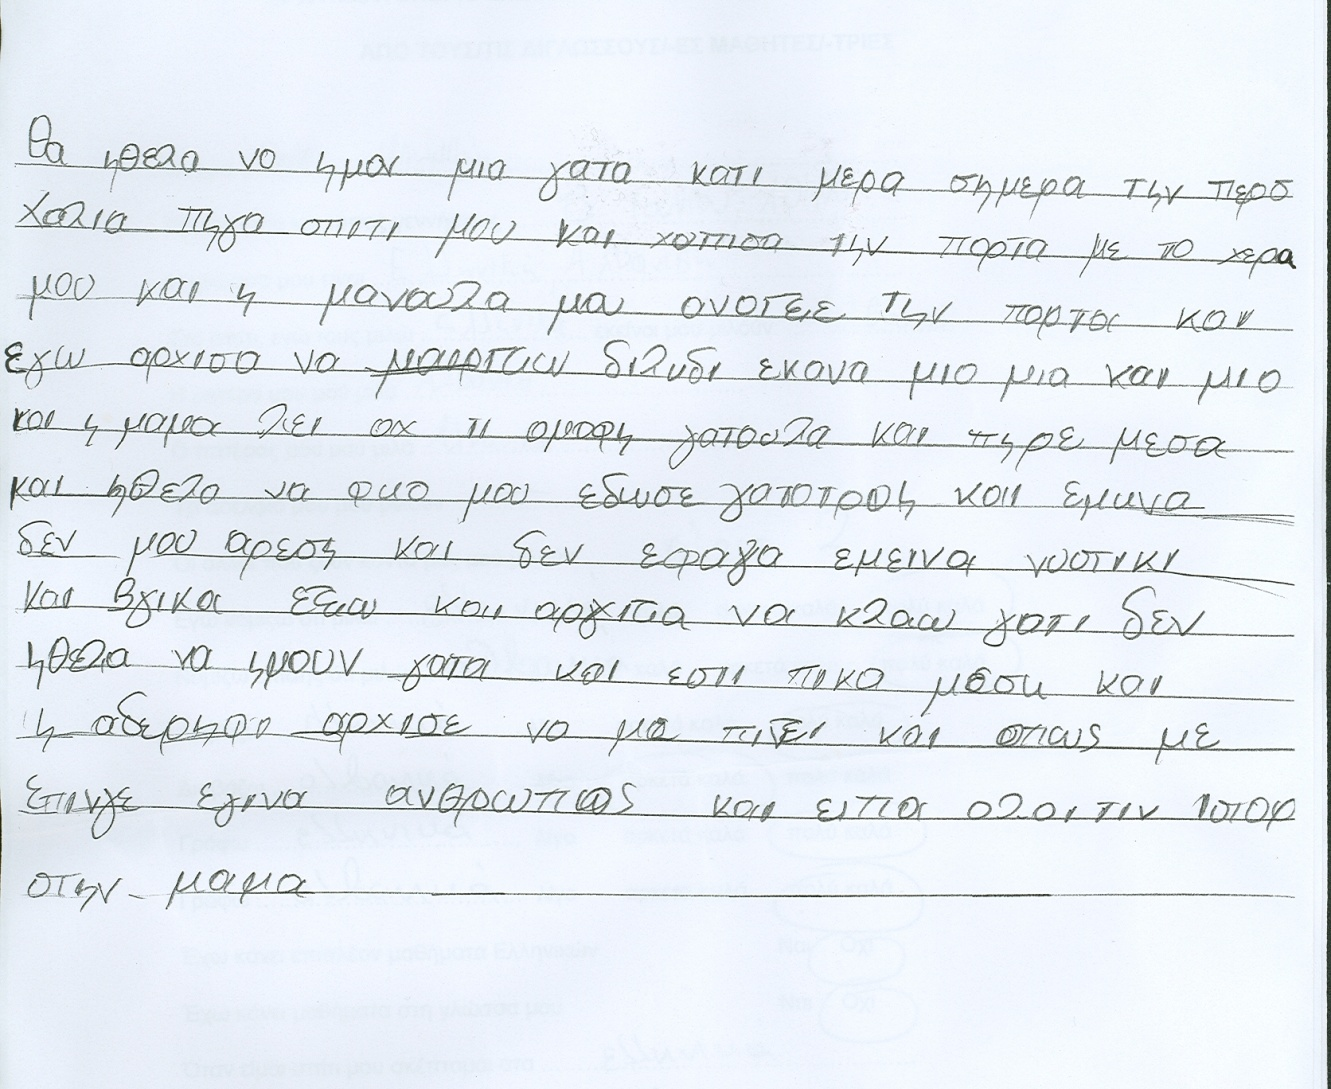 θα ηθελα νο ημαι μια γατα κατι μερα σημερα την περσ
χαλια πηγα σπιτι μου και χοτισα την πορτα με το χερα
μου και η μανουλα μου ονοιξε την πορτα και
εγω αρχισα να διλυδι εκανα μιο μια και μιο
και η μαμα λει αχ τι ομοφη γατουλα και πηρε μεσα
και ηθελα να φαο μου εδωσε γατοτροφη και εμενα
δεν μου αρεση και δεν εφαγα εμεινα νυστικι
και βγικα εξω και αρχισα να κλαω γατι δεν
ηθελα να ημουν γατα και εσπι πικα μεσα και
η αδερηφη αρχισε νο με πιξει και οπως με
επινγε εγινα ανθρωπως και ειπα ολοι τιν ιστορ
στην μαμα